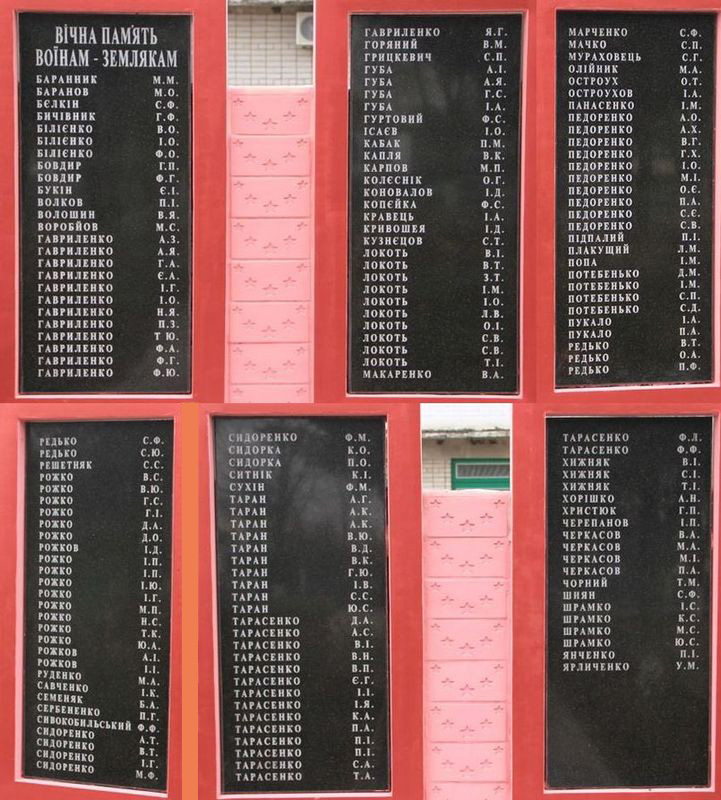 ВІЧНА ПАМ'ЯТЬ
ВОЇНАМ - ЗЕМЛЯКАМ
БАРАННИК М.М.
БАРАНОВ М.О.
БЄЛКІН С.Ф.
БИЧІВНИК Г.Ф.
БІЛІЄНКО В.О.
БІЛІЄНКО І.О.
БІЛІЄНКО Ф.О.
БОВДИР І.П.
БОВДИР Ф.Г.
БУКІН Є.І.
ВОЛКОВ П.І.
ВОЛОШИН В.Я.
ВОРОБЙОВ М.С.
ГАВРИЛЕНКО А.З.
ГАВРИЛЕНКО А.Я.
ГАВРИЛЕНКО Г.А.
ГАВРИЛЕНКО Є.А.
ГАВРИЛЕНКО І.Г.
ГАВРИЛЕНКО І.О.
ГАВРИЛЕНКО Н.Я.
ГАВРИЛЕНКО П.З.
ГАВРИЛЕНКО Т.Ю.
ГАВРИЛЕНКО Ф.А.
ГАВРИЛЕНКО Ф.Г.
ГАВРИЛЕНКО Ф.Ю.
ГАВРИЛЕНКО Я.Г.
ГОРЯНИЙ В.М.
ГРИЦКЕВИЧ С.П.
ГУБА А.І.
ГУБА А.Я.
ГУБА Г.С.
ГУБА І.А.
ГУРТОВИЙ Ф.С.
ІСАЄВ І.О.
КАБАК П.М.
КАПЛЯ В.К.
КАРПОВ М.П.
КОЛЄСНІК О.Г.
КОНОВАЛОВ І.Д.
КОПЄЙКА Ф.С.
КРАВЕЦЬ І.А.
КРИВОШЕЯ І.Д.
КУЗНЄЦОВ С.Т.
ЛОКОТЬ В.І.
ЛОКОТЬ В.Т.
ЛОКОТЬ З.Т.
ЛОКОТЬ І.М.
ЛОКОТЬ І.О.
ЛОКОТЬ Л.В.
ЛОКОТЬ О.І.
ЛОКОТЬ С.В.
ЛОКОТЬ С.В.
ЛОКОТЬ Т.І.
МАКАРЕНКО В.А.
МАРЧЕНКО С.Ф.
МАЧКО С.П.
МУРАХОВЕЦЬ С.Г.
ОЛІЙНИК М.А.
ОСТРОУХ О.Т.
ОСТРОУХОВ І.А.
ПАНАСЕНКО І.М.
ПЕДОРЕНКО А.О.
ПЕДОРЕНКО А.Х.
ПЕДОРЕНКО В.Г.
ПЕДОРЕНКО Г.Х.
ПЕДОРЕНКО І.О.
ПЕДОРЕНКО М.І.
ПЕДОРЕНКО О.Є.
ПЕДОРЕНКО П.А.
ПЕДОРЕНКО С.Є.
ПЕДОРЕНКО С.В.
ПІДПАЛИЙ П.І.
ПЛАКУЩИЙ Л.М.
ПОПА І.М.
ПОТЕБЕНЬКО Д.М.
ПОТЕБЕНЬКО І.М.
ПОТЕБЕНЬКО С.П.
ПОТЕБЕНЬКО С.Д.
ПУКАЛО І.А.
ПУКАЛО П.А.
РЕДЬКО В.Т.
РЕДЬКО О.А.
РЕДЬКО П.Ф.
РЕДЬКО С.Ф.
РЕДЬКО С.Ю.
РЕШЕТНЯК С.С.
РОЖКО В.С.
РОЖКО В.Ю.
РОЖКО Г.С.
РОЖКО Г.І.
РОЖКО Д.А.
РОЖКО Д.О.
РОЖКОВ І.Д.
РОЖКО І.П.
РОЖКО І.П.
РОЖКО І.Ю.
РОЖКО І.Г.
РОЖКО М.П.
РОЖКО Н.С.
РОЖКО Т.К.
РОЖКО Ю.А.
РОЖКОВ А.І.
РОЖКОВ І.І.
РУДЕНКО М.А.
САВЧЕНКО І.К.
СЕМЕНЯК Б.А.
СЕРБЕНЕНКО П.Г.
СИВОКОБИЛЬСЬКИЙ Ф.Ф.
СИДОРЕНКО А.Т.
СИДОРЕНКО В.Т.
СИДОРЕНКО І.Г.
СИДОРЕНКО М.Ф.
СИДОРЕНКО Ф.М.
СИДОРКА К.О.
СИДОРКА П.О.
СИТНІК К.І.
СУХІН Ф.М.
ТАРАН А.Г.
ТАРАН А.К.
ТАРАН А.К.
ТАРАН В.Ю.
ТАРАН В.Д.
ТАРАН В.К.
ТАРАН Г.Ю.
ТАРАН І.В.
ТАРАН С.С.
ТАРАН Ю.С.
ТАРАСЕНКО Д.А.
ТАРАСЕНКО А.С.
ТАРАСЕНКО В.І.
ТАРАСЕНКО В.Н.
ТАРАСЕНКО В.П.
ТАРАСЕНКО Є.Г.
ТАРАСЕНКО І.І.
ТАРАСЕНКО І.Я.
ТАРАСЕНКО К.А.
ТАРАСЕНКО П.А.
ТАРАСЕНКО П.І.
ТАРАСЕНКО П.І.
ТАРАСЕНКО С.А.
ТАРАСЕНКО Т.А.
ТАРАСЕНКО Ф.Л.
ТАРАСЕНКО Ф.Ф.
ХИЖНЯК В.І.
ХИЖНЯК С.І.
ХИЖНЯК Т.І.
ХОРІШКО А.Н.
ХРИСТЮК Г.П.
ЧЕРЕПАНОВ І.П.
ЧЕРКАСОВ В.А.
ЧЕРКАСОВ М.А.
ЧЕРКАСОВ М.І.
ЧЕРКАСОВ П.А.
ЧОРНИЙ Т.М.
ШИЯН С.Ф.
ШРАМКО І.С.
ШРАМКО К.С.
ШРАМКО М.С.
ШРАМКО Ю.С.
ЯНЧЕНКО П.І.
ЯРЛИЧЕНКО У.М.